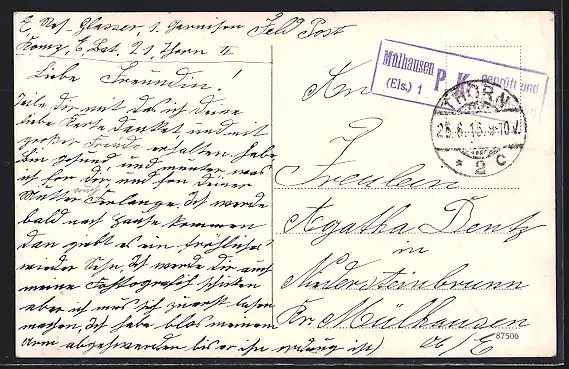 E. Res. Glasser, 1. Garnison Feld Post
Komp, E, Bat. 21, Thorn II
Liebe Freundin!
Teile dir mit das ich deine
liebe Karte danket und mit
großer Freude erhalten habe
bin gesund und munter was
ich von dir und von deiner
Mutter auch Verlange. Ich werde
bald nach Hause kommen
dan gibt es ein fröhliches
wieder Sehn, Ich werde dir auch
meine Fohtografih schiken
aber ich mus sich zuerst lasen
machen, Ich habe blos meinem
Arm
bis er
ist)
An
Freulein
Agatha Bentz
in
Niedersteinbrunn
Kr. Mülhausen
o/E
Mülhausen
(Els.) 1
P. K.
geprüft und
THORN
25.6.15.9-10V.
* 2 c
87506